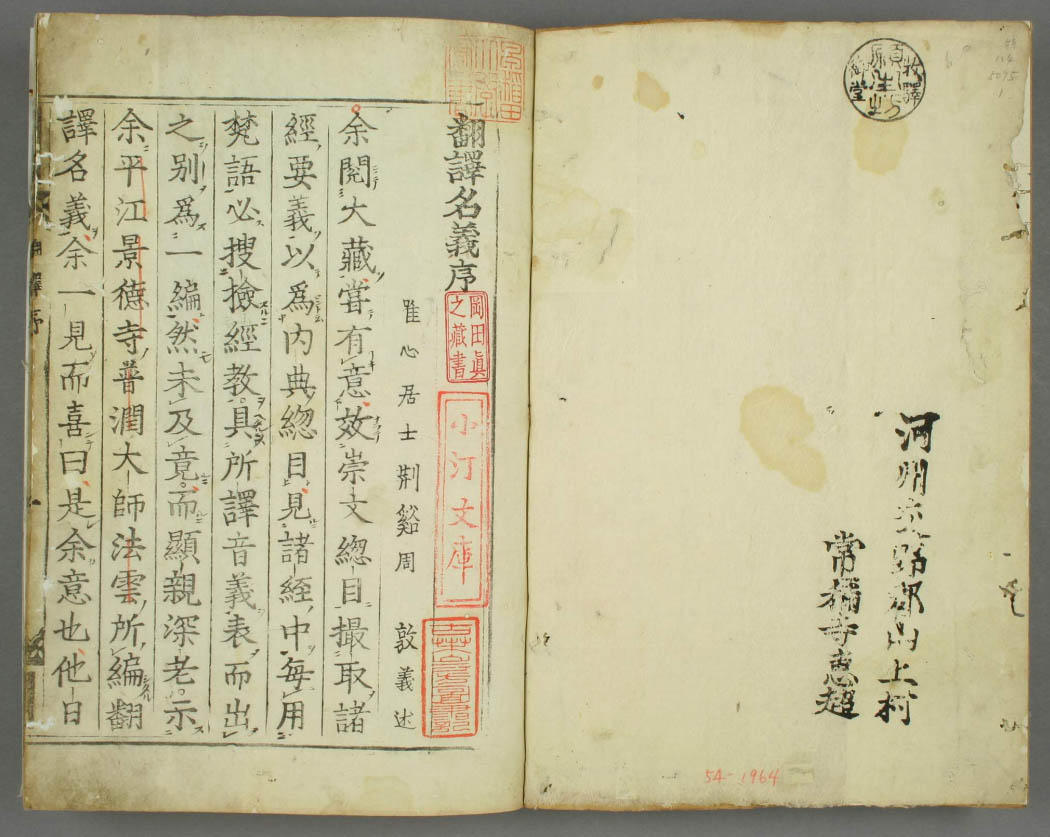 河州交野郡山上村
常稱寺惠超
54-1964
翻譯名義序
岡田眞
之藏書
小汀文庫
唯心居士荆谿周 敦義述
余閱大藏嘗有意效崇文總目撮取諸
經要義以爲内典總目見諸經中每用
梵語必搜撿經教具所譯音義表而出
之别爲一編然未及竟而顯親深老示
余平江景德寺普潤大師法雲所編翻
譯名義余一見而喜曰是余意也他日